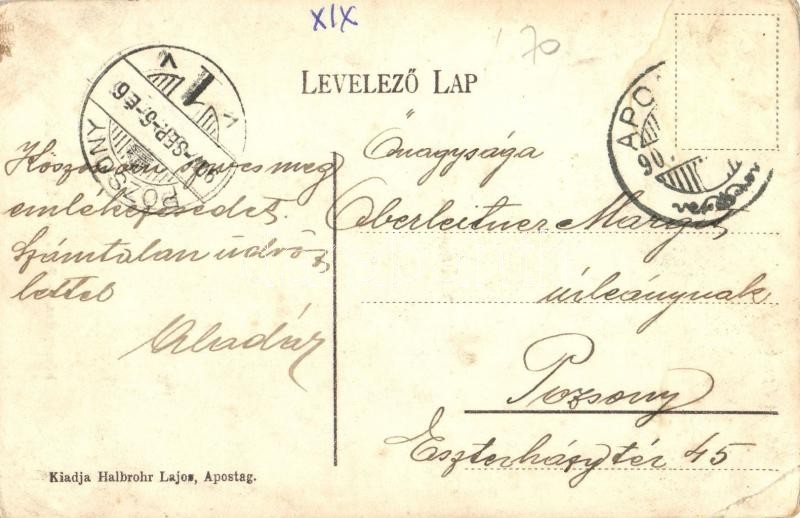 XIX
70
LEVELEZŐ LAP
POZSONY
907-SEP.-6.-É6
1
V
APO
90
Köszönöm szives meg
emlékezésedet.
Számtalan üdvöz
lettel
Aladár
Őnagysága
Oberleitner Margit
úrleánynak
Pozsony
Eszterházy tér 45
Kiadja Halbrohr Lajos, Apostag.